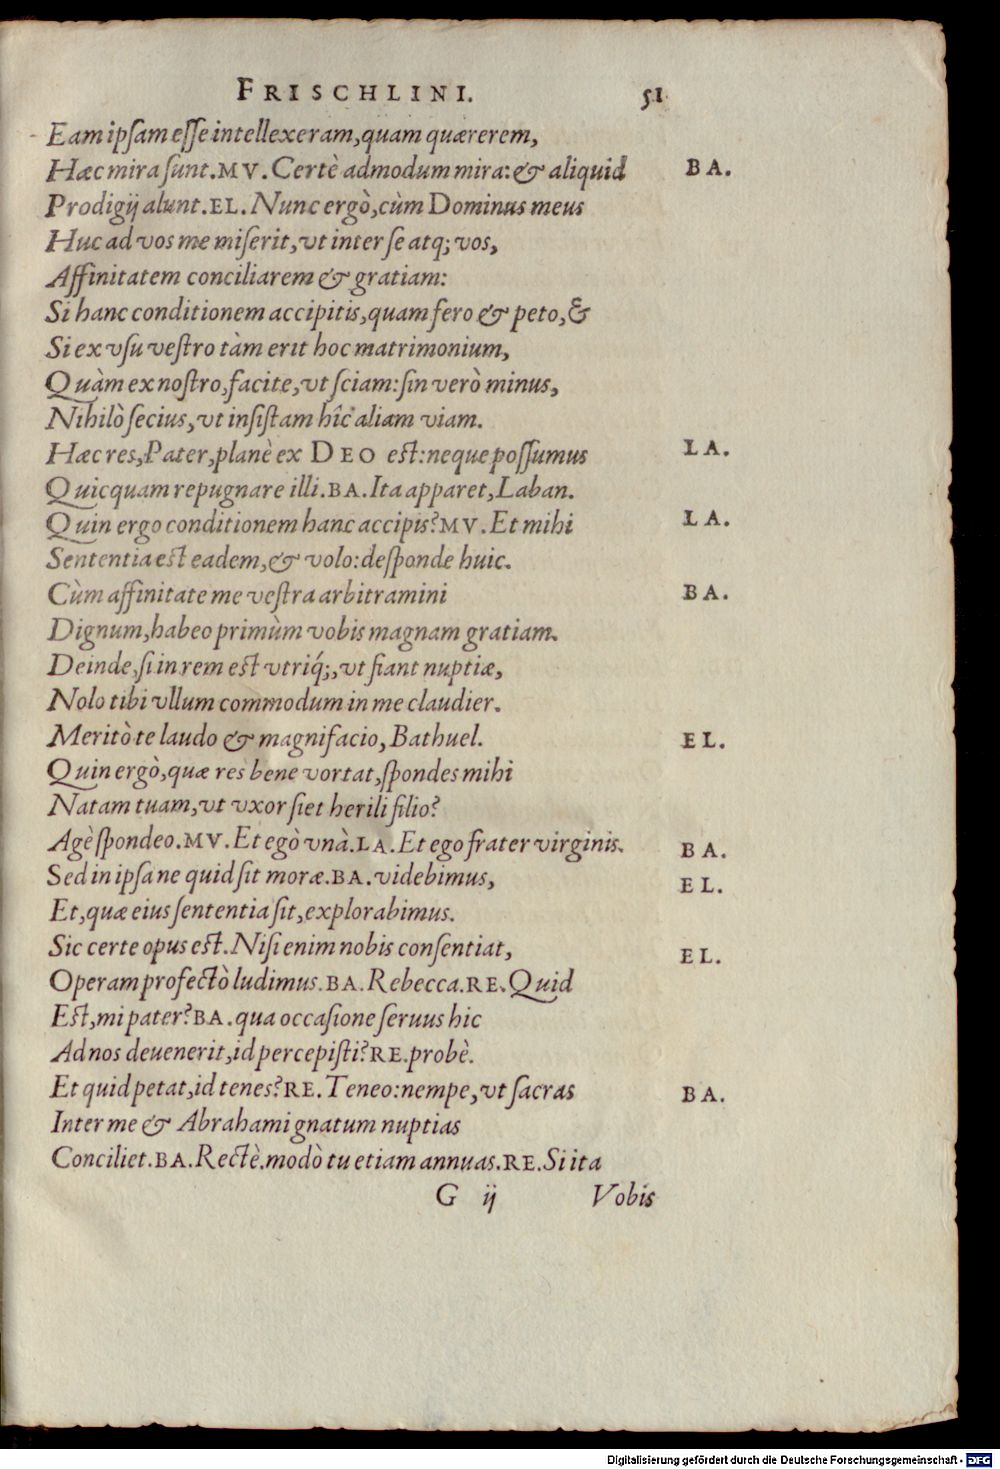 FRISCHLINI. 51
Eam ipſam eſſe intellexeram, quam quærerem,
Hæc mira ſunt. MV. Certè admodum mira: & aliquid BA.
Prodigij alunt. EL. Nunc ergò, cùm Dominus meus
Huc ad vos me miſerit, vt inter ſe atq; vos,
Affinitatem conciliarem & gratiam:
Si hanc conditionem accipitis, quam fero & peto, &
Si ex vſu veſtro tàm erit hoc matrimonium,
Quàm ex noſtro, facite, vt ſciam: ſin verò minus,
Nihilò ſecius, vt inſiſtam hîc aliam viam.
Hæc res, Pater, planè ex DEO eſt: neque poſſumus LA.
Quicquam repugnare illi. BA. Ita apparet, Laban.
Quin ergo conditionem hanc accipis? MV. Et mihi LA.
Sententia eſt eadem, & volo: deſponde huic.
Cùm affinitate me veſtra arbitramini BA.
Dignum, habeo primùm vobis magnam gratiam.
Deinde, ſi in rem eſt vtriq́;, vt fiant nuptiæ,
Nolo tibi vllum commodum in me claudier.
Meritò te laudo & magnifacio, Bathuel. EL.
Quin ergò, quæ res bene vortat, ſpondes mihi
Natam tuam, vt vxor ſiet herili filio?
Agè ſpondeo. MV. Et egò vnà. LA. Et ego frater virginis. BA.
Sed in ipſa ne quid ſit moræ. BA. videbimus, EL.
Et, quæ eius ſententia ſit, explorabimus.
Sic certe opus eſt. Niſi enim nobis conſentiat, EL.
Operam profectò ludimus. BA. Rebecca. RE. Quid
Eſt, mi pater? BA. qua occaſione ſeruus hic
Ad nos deuenerit, id percepiſti? RE. probè.
Et quid petat, id tenes? RE. Teneo: nempe, vt ſacras BA.
Inter me & Abrahami gnatum nuptias
Conciliet. BA. Rectè. modò tu etiam annuas. RE. Si ita
G ij Vobis
Digitalisierung gefördert durch die Deutsche Forschungsgemeinschaft - DFG